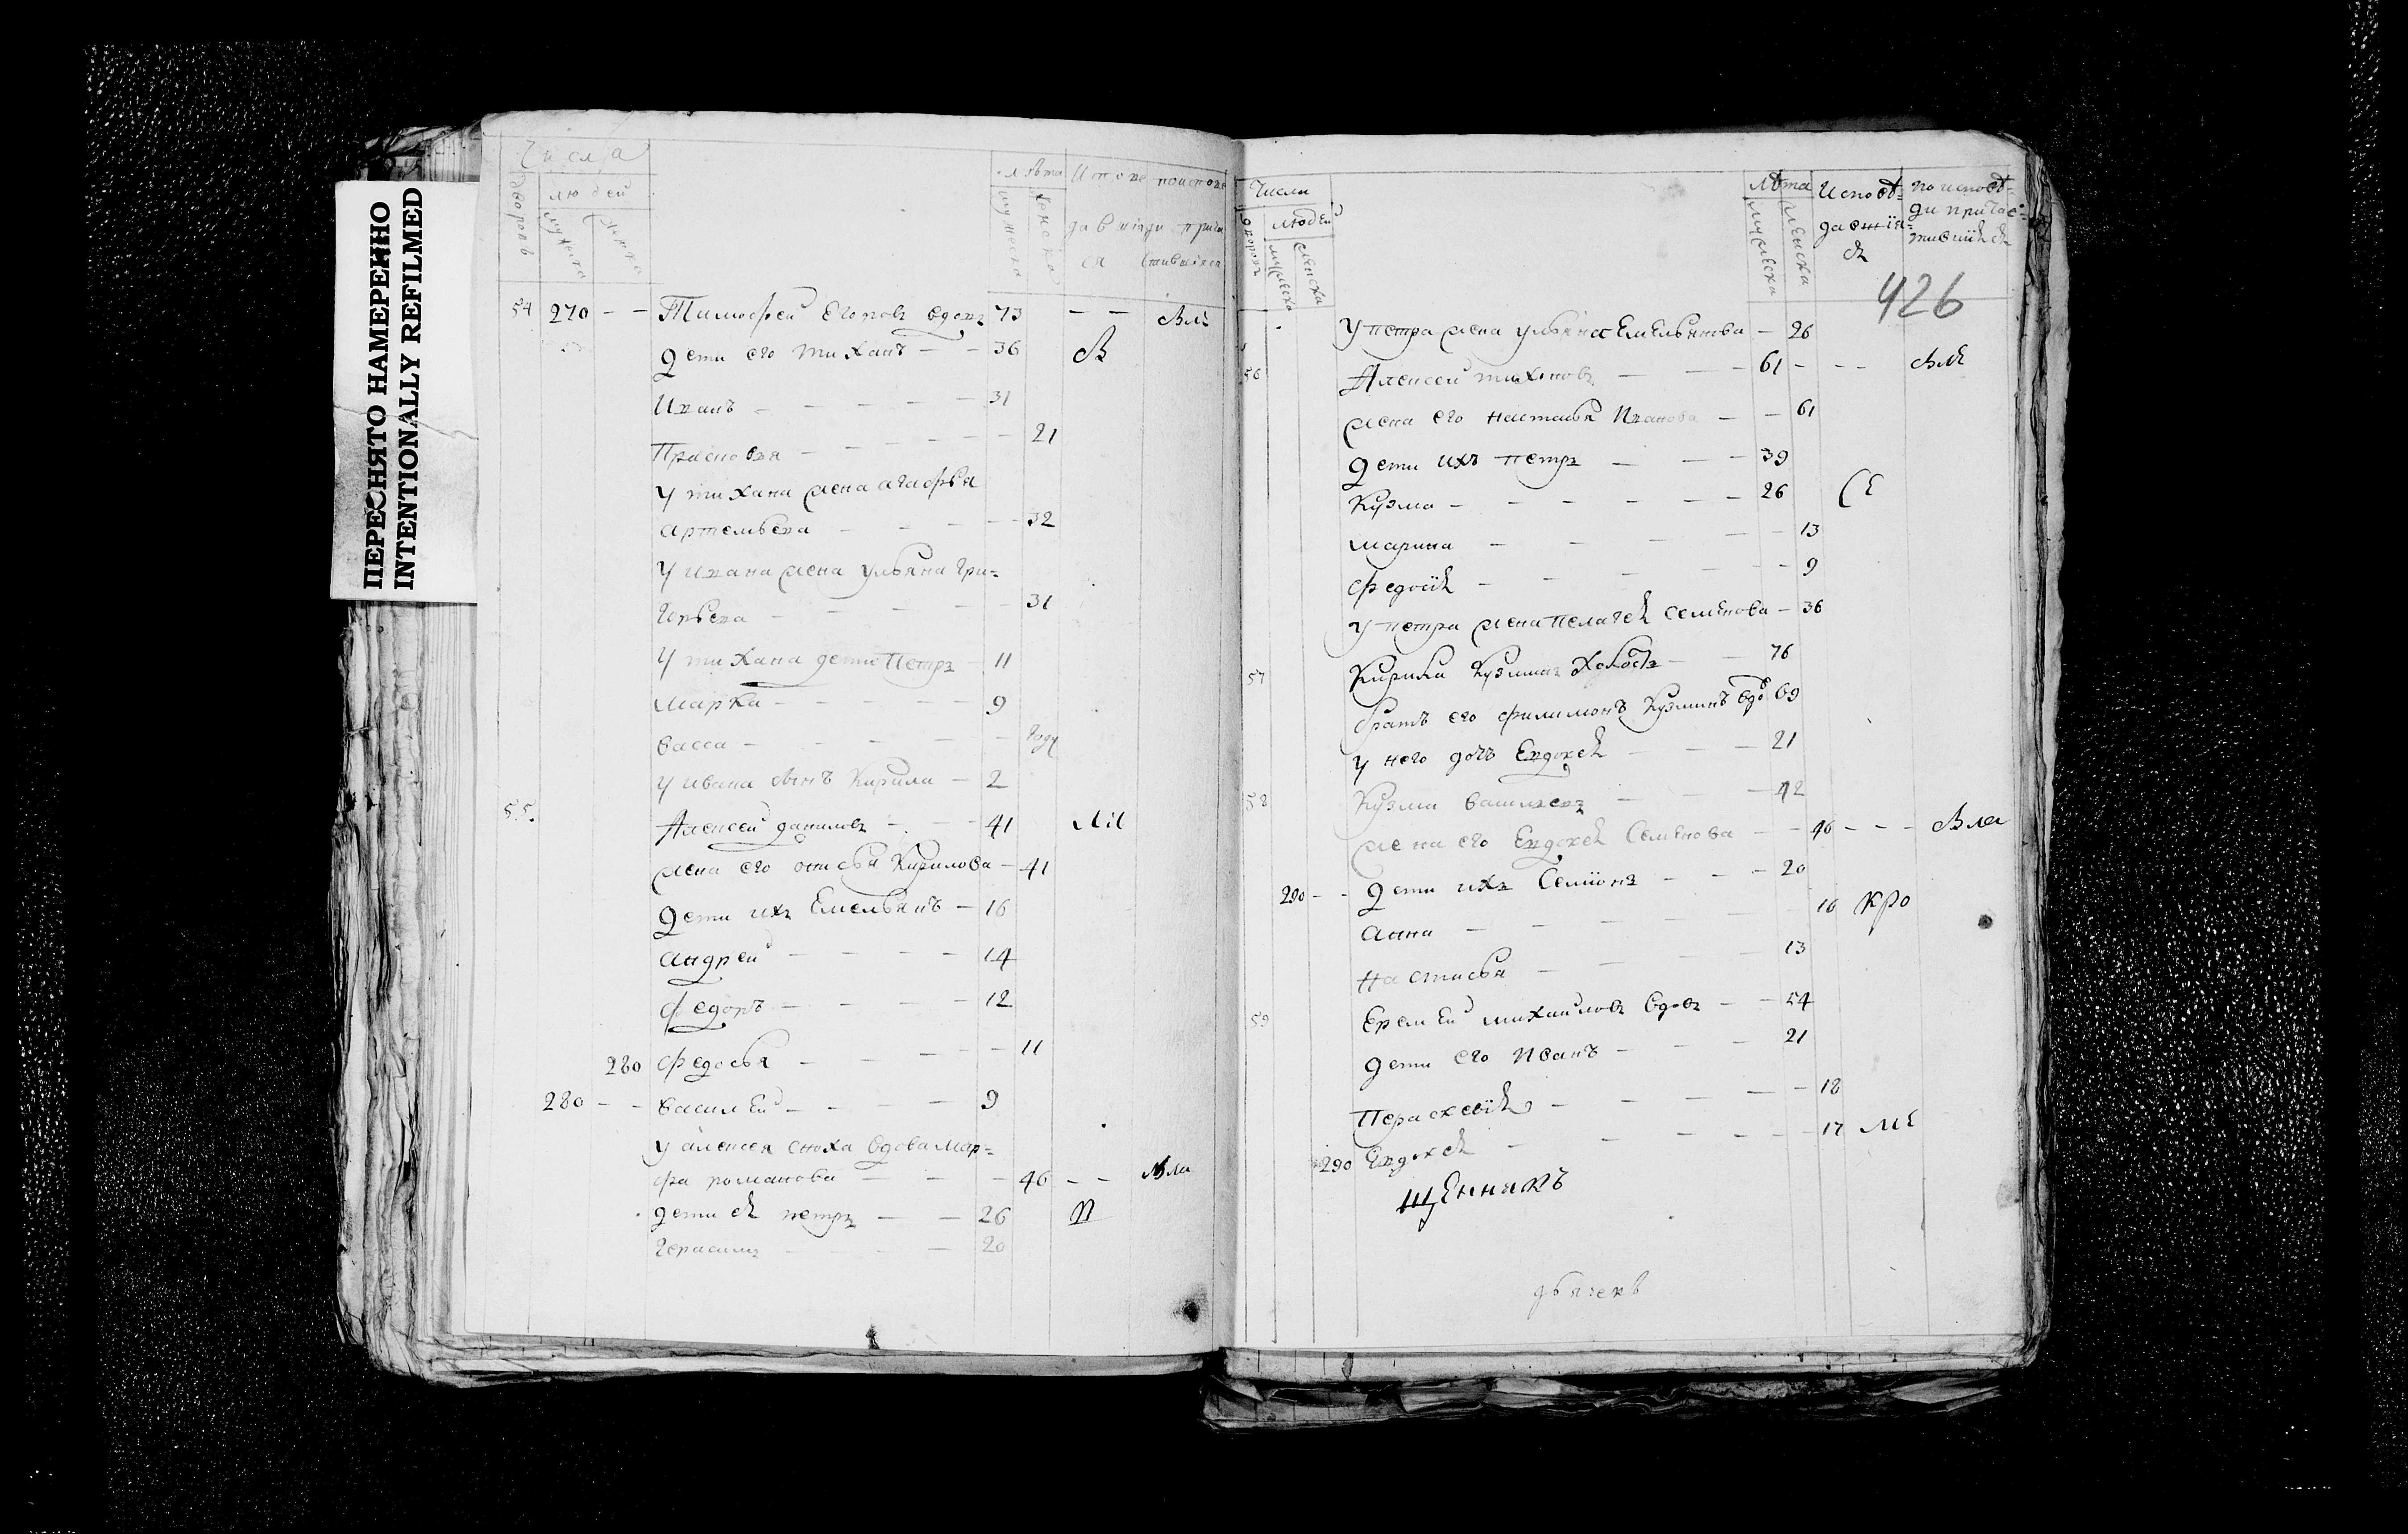 ПЕРЕСНЯТО НАМЕРЕННО
INTENTIONALLY REFILMED
Числа
людей
дворовъ
мужеска
женска
лѣта
мужеска
женска
54 270 - - Тимофей Егоровъ вдовъ 73 - -
дети его Тиханъ - - 36
Иванъ - - - - - 31
Прасковья - - - - - 21
У тихана жена агафья
артемьева - - - - 32
У ивана жена ульяна гри=
горьева - - - - 31
У тихана дети Петръ - 11
Марка - - - - - 9
васса - - - - - году
У ивана сынъ Кирила - 2
55. Алексей даниловъ - - - 41
жена его Кирилова - 41
дети ихъ Емельянъ - 16
андрей - - - - 14
федоръ - - - - 12
280 федосья - - - - 11
280 - - василей - - - - 9
У алексея сноха вдова мар=
фа романова - - - 46 - -
дети ея петръ - - 26
герасимъ - - - 20
Числа
людей
дворовъ
мужеска
женска
лѣта
мужеска
женска
Исповѣ=
давшія=
ся
по исповѣ=
ди причас=
тившіяся
426
У петра жена ульяна Емельянова - 26
56 Алексей тихоновъ - - - 61 - - -
жена его настасья Иванова - - 61
дети ихъ петръ - - - 39
Кузма - - - - - - 26
марина - - - - 13
федосія - - - - - 9
У петра жена пелагея семенова - 36
57 Кирила Кузминъ холостъ - - 76
братъ его филимонъ Кузминъ вдо 69
у него дочь Евдокея - - - 21
58 Кузма васильевъ - - - 42
жена его Евдокея Семенова - - 46 - - -
290 - - дети ихъ Семіонъ - - - 20
анна - - - - 16
настасья - - - 13
59 Еремей михаиловъ вдовъ - - 54
дети его Иванъ - - - 21
Перасковія - - - - - 18
290 Евдокея - - - - - - 17
щенникъ
дьячекъ